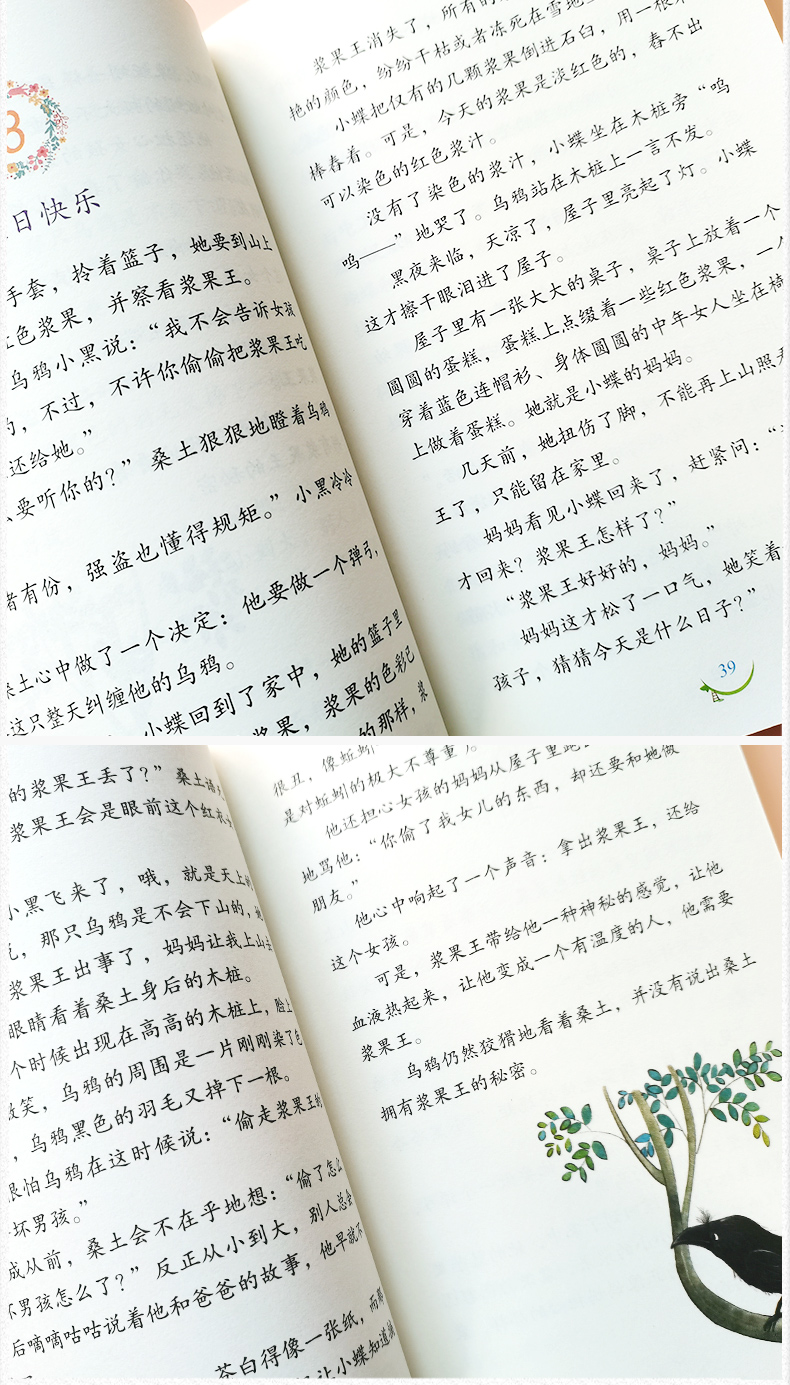 3
日快乐
手套，拎着篮子，她要到山上
色浆果，并察看浆果王。
乌鸦小黑说：“我不会告诉女孩
，不过，不许你偷偷把浆果王吃
还给她。”
要听你的？”桑土狠狠地瞪着乌鸦
者有份，强盗也懂得规矩。”小黑冷冷
桑土心中做了一个决定：他要做一个弹弓，
这只整天纠缠他的乌鸦。
小蝶回到了家中，她的篮子里
浆果，浆果的色彩已
的那样，浆
浆果王消失了，所有的
艳的颜色，纷纷干枯或者冻死在雪地
小蝶把仅有的几颗浆果倒进石臼，用一根
棒舂着。可是，今天的浆果是淡红色的，舂不出
可以染色的红色浆汁。
没有了染色的浆汁，小蝶坐在木桩旁“呜
呜——”地哭了。乌鸦站在木桩上一言不发。
黑夜来临，天凉了，屋子里亮起了灯。小蝶
这才擦干眼泪进了屋子。
屋子里有一张大大的桌子，桌子上放着一个
圆圆的蛋糕，蛋糕上点缀着一些红色浆果，一
穿着蓝色连帽衫、身体圆圆的中年女人坐在椅
上做着蛋糕。她就是小蝶的妈妈。
几天前，她扭伤了脚，不能再上山照
王了，只能留在家里。
妈妈看见小蝶回来了，赶紧问：“
才回来？浆果王怎样了？”
“浆果王好好的，妈妈。”
妈妈这才松了一口气，她笑着
孩子，猜猜今天是什么日子？”
39
的浆果王丢了？”桑土
浆果王会是眼前这个红衣
小黑飞来了，哦，就是天上的
，那只乌鸦是不会下山的，
浆果王出事了，妈妈让我上山去
眼睛看着桑土身后的木桩。
个时候出现在高高的木桩上，脸上
微笑，乌鸦的周围是一片刚刚染了色
，乌鸦黑色的羽毛又掉下一根。
很怕乌鸦在这时候说：“偷走浆果王的
坏男孩。”
成从前，桑土会不在乎地想：“偷了怎么
坏男孩怎么了？”反正从小到大，别人总会
后嘀嘀咕咕说着他和爸爸的故事，他早就不
苍白得像一张纸，
让小蝶知道
很丑，像蚯蚓
是对蚯蚓的极大不尊重）。
他还担心女孩的妈妈从屋子里
地骂他：“你偷了我女儿的东西，却还要和她做
朋友。”
他心中响起了一个声音：拿出浆果王，还给
这个女孩。
可是，浆果王带给他一种神秘的感觉，让他
血液热起来，让他变成一个有温度的人，他需要
浆果王。
乌鸦仍然狡猾地看着桑土，并没有说出桑土
拥有浆果王的秘密。